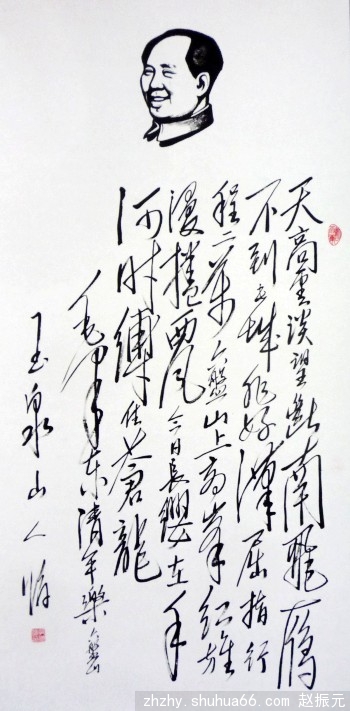 天高雲淡望断南飛雁
不到長城非好漢屈指行
程二万六盤山上高峯红旗
漫捲西风今日長纓在手
何时縛住蒼龍
毛泽东清平樂六盘
玉泉山人
zhzhy.shuhua66.com 赵振元